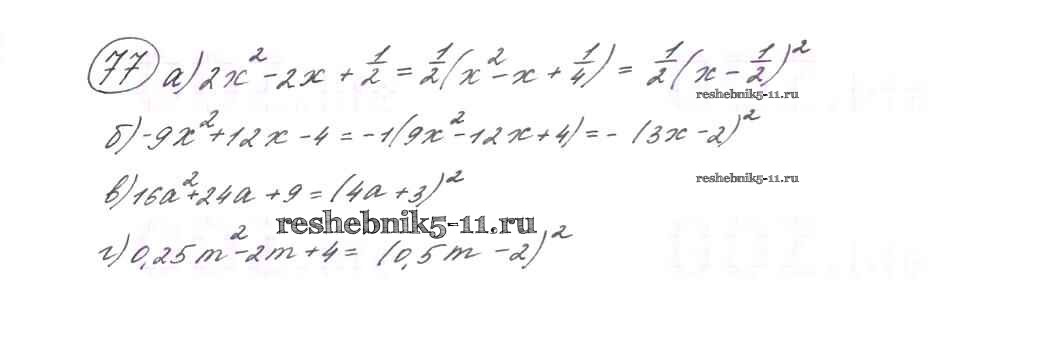 77 а) 2x² - 2x + 1/2 = 1/2 (x² - x + 1/4) = 1/2 (x - 1/2)²
reshebnik5-11.ru
б) -9x² + 12x - 4 = -1(9x² - 12x + 4) = - (3x - 2)²
в) 16a² + 24a + 9 = (4a + 3)²
reshebnik5-11.ru
reshebnik5-11.ru
г) 0,25m² - 2m + 4 = (0,5m - 2)²